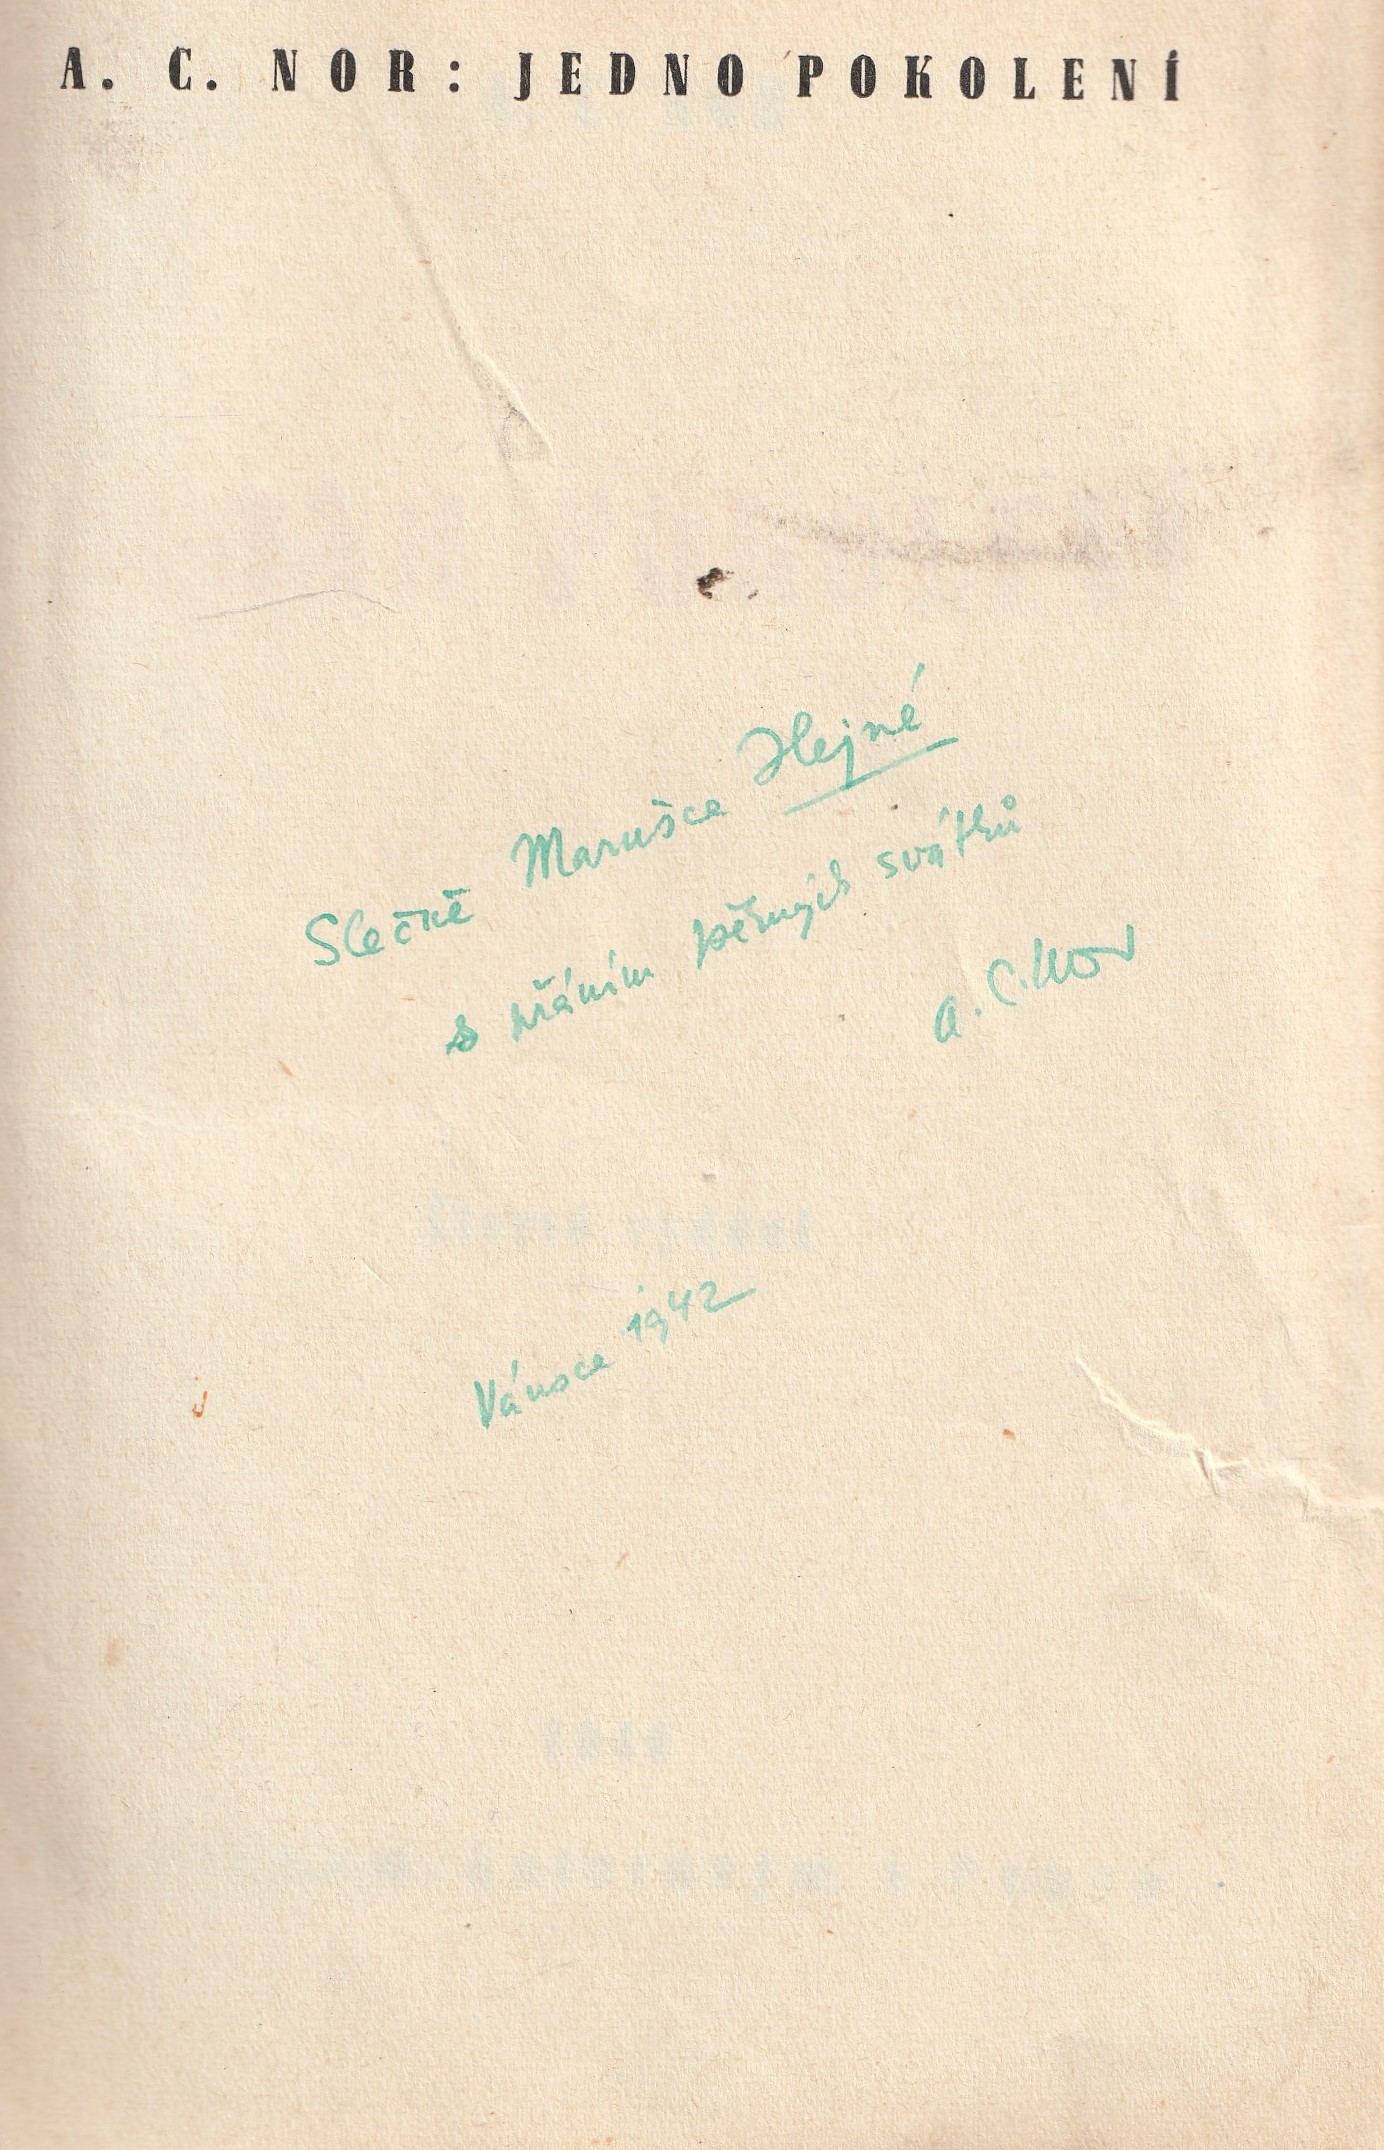 A. C. NOR: JEDNO POKOLENÍ
Slečně Marušce Hejné
s přáním pěkných svátků
A. C. Nor
Vánoce 1942